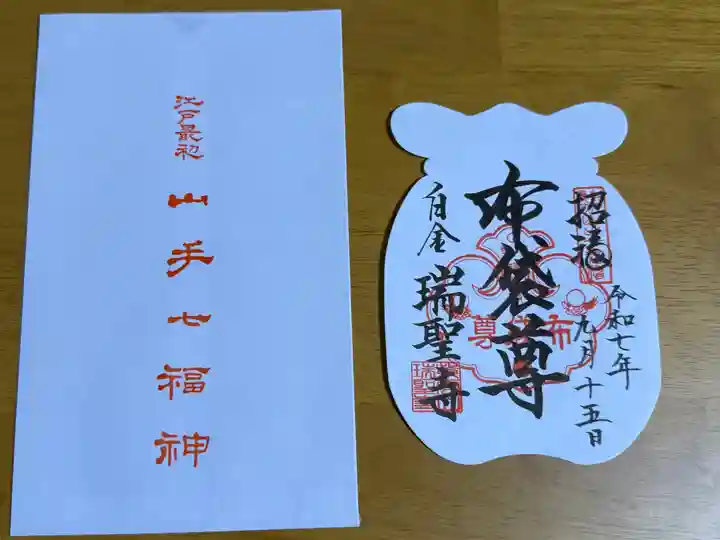 江戸最初
山手七福神
招福
令和七年
九月十五日
布袋尊
布袋尊
白金
瑞聖寺